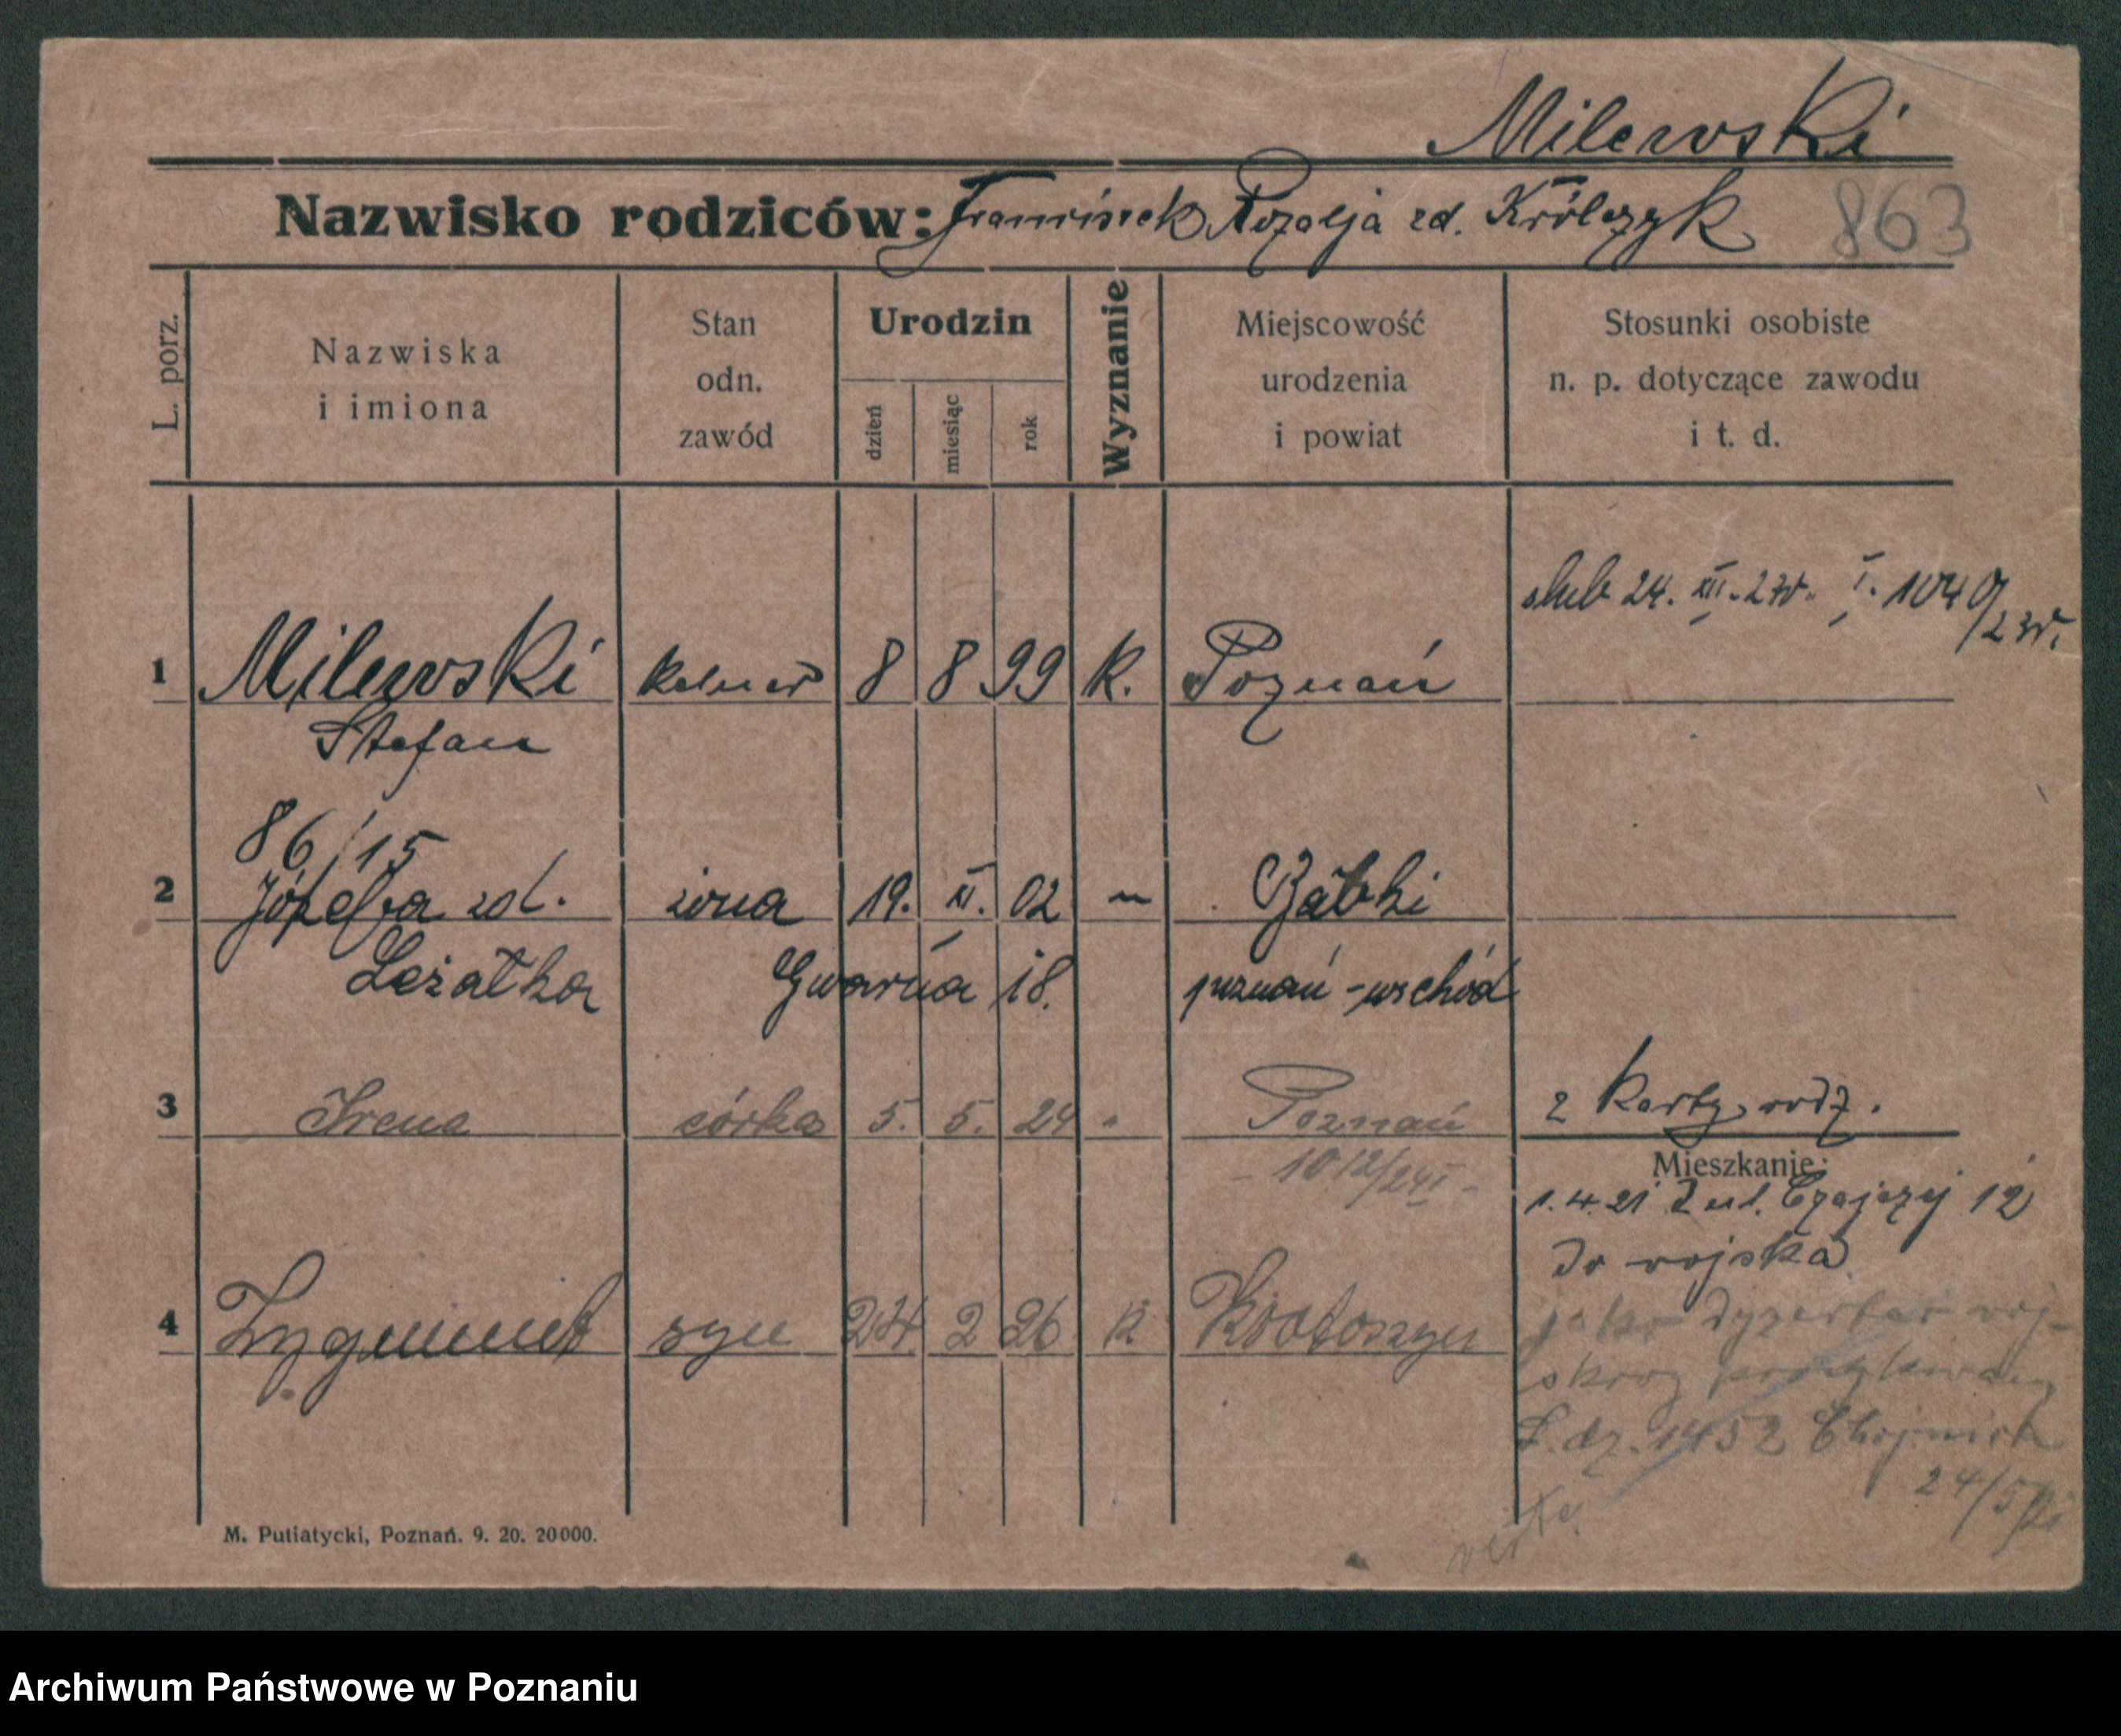 Milewski
Nazwisko rodziców: Franciszek Rozalja zd. Królczyk
863
L. porz.
Nazwiska
i imiona
Stan
odn.
zawód
Urodzin
dzień
miesiąc
rok
Wyznanie
Miejscowość
urodzenia
i powiat
Stosunki osobiste
n. p. dotyczące zawodu
i t. d.
ślub 24. XII. 23r. I. 1040/23r.
1 Milewski kelner 8 8 99 K. Poznań
Stefan
86/15
2 Józefa zd. żona 19. XI. 02 " Babki
Leżatka Gwarna 18. poznań-wschód
3 Irena córka 5. 5. 24 " Poznań 2 Karty rodz.
- 1012/24 I -
Mieszkanie:
1. 4. 21 Z ul. Czajczej 12
do wojska
4 Zygmunt syn 24 2 26 K Krotoszyn
jako dyzerter woj-
skowy poszukiwany
L. dz. 1452
24/5
verte
M. Putiatycki, Poznań. 9. 20. 20000.
Archiwum Państwowe w Poznaniu